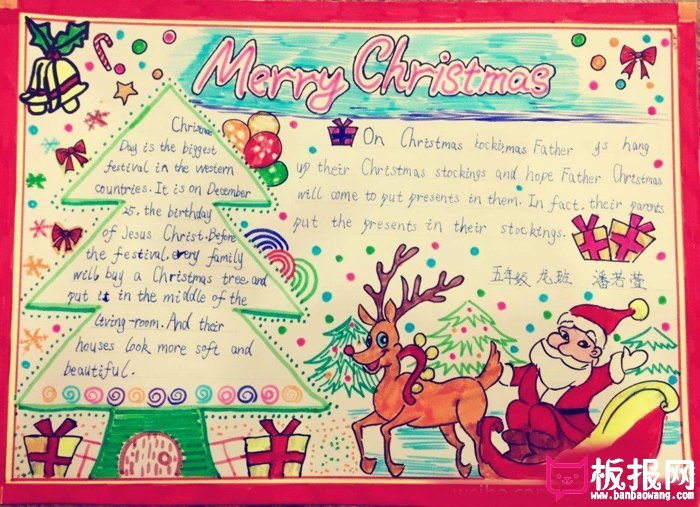 Merry Christmas
Christmas
Day is the biggest
festival in the western
countries. It is on December
25, the birthday
of Jesus Christ. Before
the festival, every family
will buy a Christmas tree and
put it in the middle of the
living-room. And their
houses look more soft and
beautiful.
On Christmas Father ys hang
up their Christmas stockings and hope Father Christmas
will come to put presents in them. In fact, their parents
put the presents in their stockings.
五年级 龙班 潘若萱
weibo.com
板报网
www.banbaowang.com